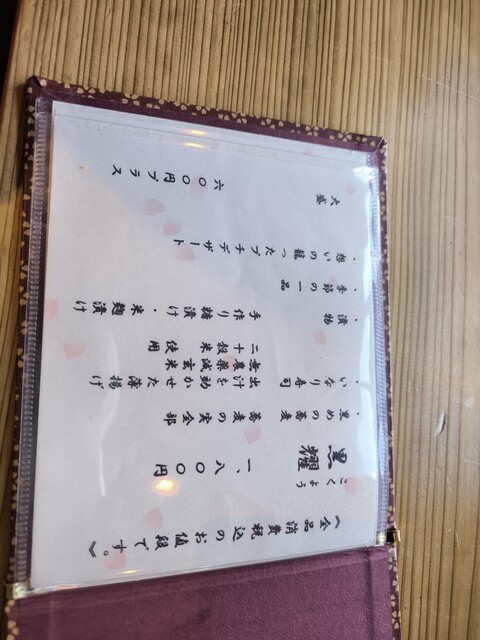 《全品消費税込のお値段です。》
こくよう
黒耀 一、八〇〇円
・黒めの蕎麦 蕎麦の実全部
・いなり寿司 出汁を効かせた薄揚げ
無農薬減玄米
二十穀米使用
・漬物 手作り糠漬け・米麹漬け
・季節の一品
・想いの籠ったプチデザート
大盛 六〇〇円プラス